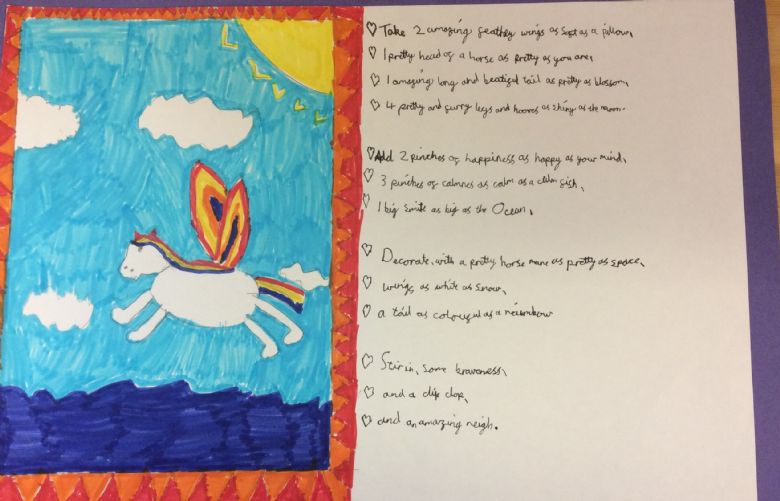 Take 2 amazing feathly wings as soft as a pillow,
1 pretty head of a horse as pretty as you are,
1 amazing long and beatiful tail as pretty as blossom,
4 pretty and furry legs and hooves as shiny as the moon.
Add 2 pinches of happiness as happy as your mind,
3 pinches of calmnes as calm as a clam fish,
1 big smile as big as the Ocean,
Decorate with a pretty horse mane as pretty as space,
wings as white as snow,
a tail as colourful as a
Stir in, some braveness,
and a clip clop,
and an amazing neigh.